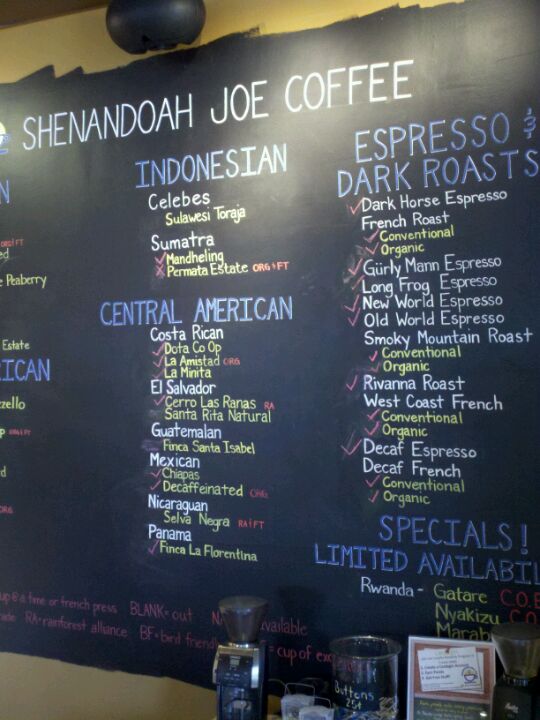 SHENANDOAH JOE COFFEE
INDONESIAN
Celebes
Sulawesi Toraja
Sumatra
Mandheling
Permata Estate ORG & FT
CENTRAL AMERICAN
Costa Rican
Dota Co Op
La Amistad ORG
La Minita
El Salvador
Cerro Las Ranas RA
Santa Rita Natural
Guatemalan
Finca Santa Isabel
Mexican
Chiapas
Decaffeinated ORG
Nicaraguan
Selva Negra RA & FT
Panama
Finca La Florentina
ESPRESSO &
DARK ROASTS
Dark Horse Espresso
French Roast
Conventional
Organic
Gürly Mann Espresso
Long Frog Espresso
New World Espresso
Old World Espresso
Smoky Mountain Roast
Conventional
Organic
Rivanna Roast
West Coast French
Conventional
Organic
Decaf Espresso
Decaf French
Conventional
Organic
SPECIALS!
LIMITED AVAILABIL
Rwanda - Gatare C.O.
Nyakizu C.O
Marab
Peaberry
Estate
ICAN
zello
ORG
up @ a time or french press BLANK = out available
rade RA = rainforest alliance BF = bird friendly = cup of exc
Buttons
25¢